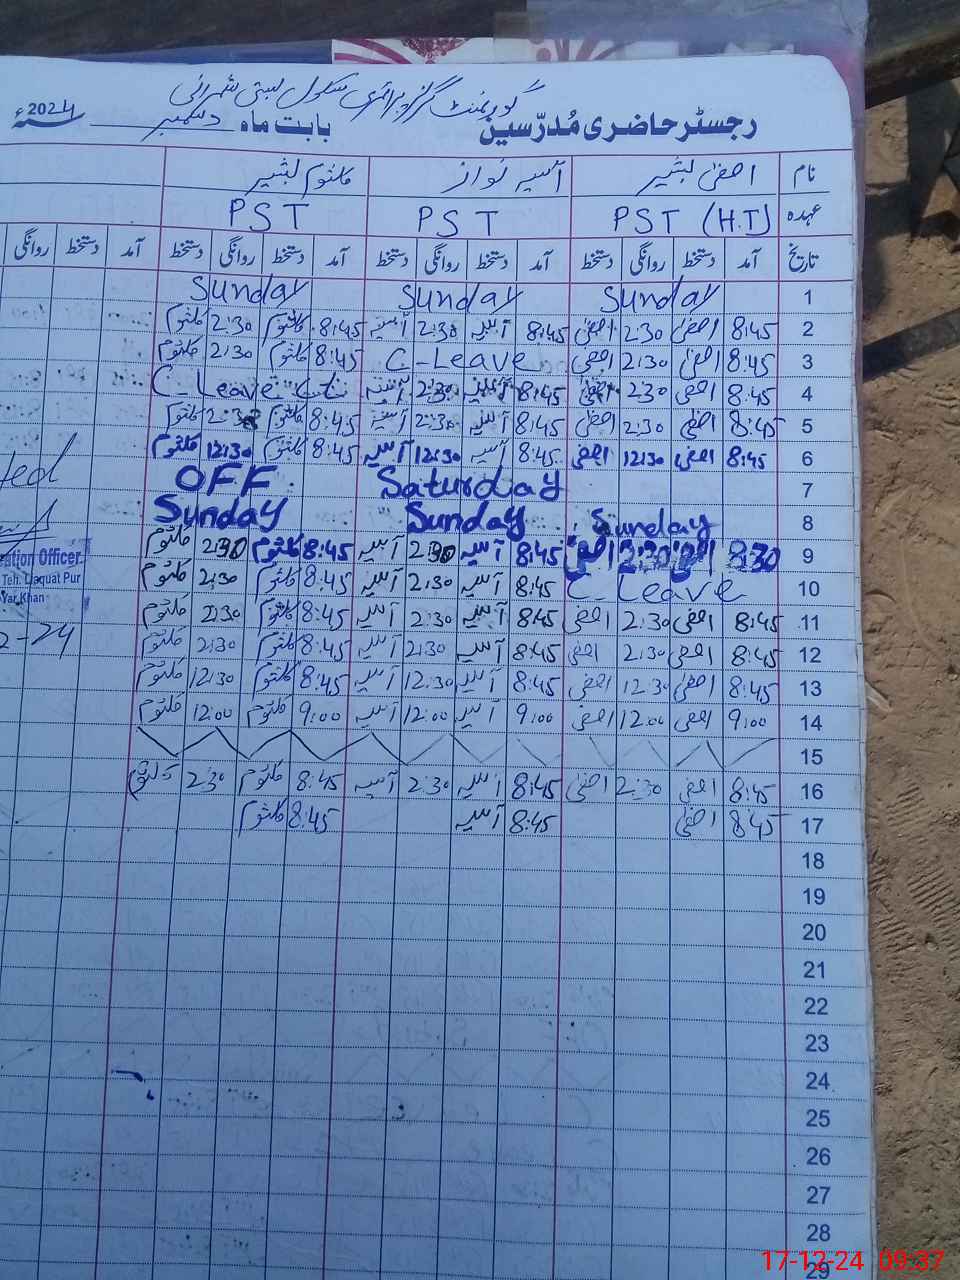 گورنمنٹ گرلز پرائمری سکول بستی شہرانی
رجسٹر حاضری مُدرّسین بابت ماہ دسمبر 2024
نام آسیہ نواز کلثوم بشیر
عہدہ PST (H.T) PST PST
تاریخ آمد دستخط روانگی دستخط آمد دستخط روانگی دستخط آمد دستخط روانگی دستخط آمد دستخط روانگی
1 Sunday Sunday Sunday
2 8:45 2:30 8:45 آسیہ 2:30 آسیہ 8:45 کلثوم 2:30 کلثوم
3 8:45 2:30 C-Leave 8:45 کلثوم 2:30 کلثوم
4 8:45 2:30 8:45 آسیہ 2:30 آسیہ C Leave
5 8:45 2:30 8:45 آسیہ 2:30 آسیہ 8:45 کلثوم 2:30 کلثوم
6 8:45 12:30 8:45 آسیہ 12:30 آسیہ 8:45 کلثوم 12:30 کلثوم
7 Saturday OFF
8 Sunday Sunday Sunday
9 8:30 2:30 8:45 آسیہ 2:30 آسیہ 8:45 کلثوم 2:30 کلثوم
10 C Leave 8:45 آسیہ 2:30 آسیہ 8:45 کلثوم 2:30 کلثوم
11 8:45 2:30 8:45 آسیہ 2:30 آسیہ 8:45 کلثوم 2:30 کلثوم
12 8:45 2:30 8:45 آسیہ 2:30 آسیہ 8:45 کلثوم 2:30 کلثوم
13 8:45 12:30 8:45 آسیہ 12:30 آسیہ 8:45 کلثوم 12:30 کلثوم
14 9:00 12:00 9:00 آسیہ 12:00 آسیہ 9:00 کلثوم 12:00 کلثوم
15
16 8:45 2:30 8:45 آسیہ 2:30 آسیہ 8:45 کلثوم 2:30 کلثوم
17 8:45 8:45 آسیہ 8:45 کلثوم
18
19
20
21
22
23
24
25
26
27
28
29
ation Officer
Teh. Liaquat Pur
Yar Khan
2-24
17-12-24 09:37